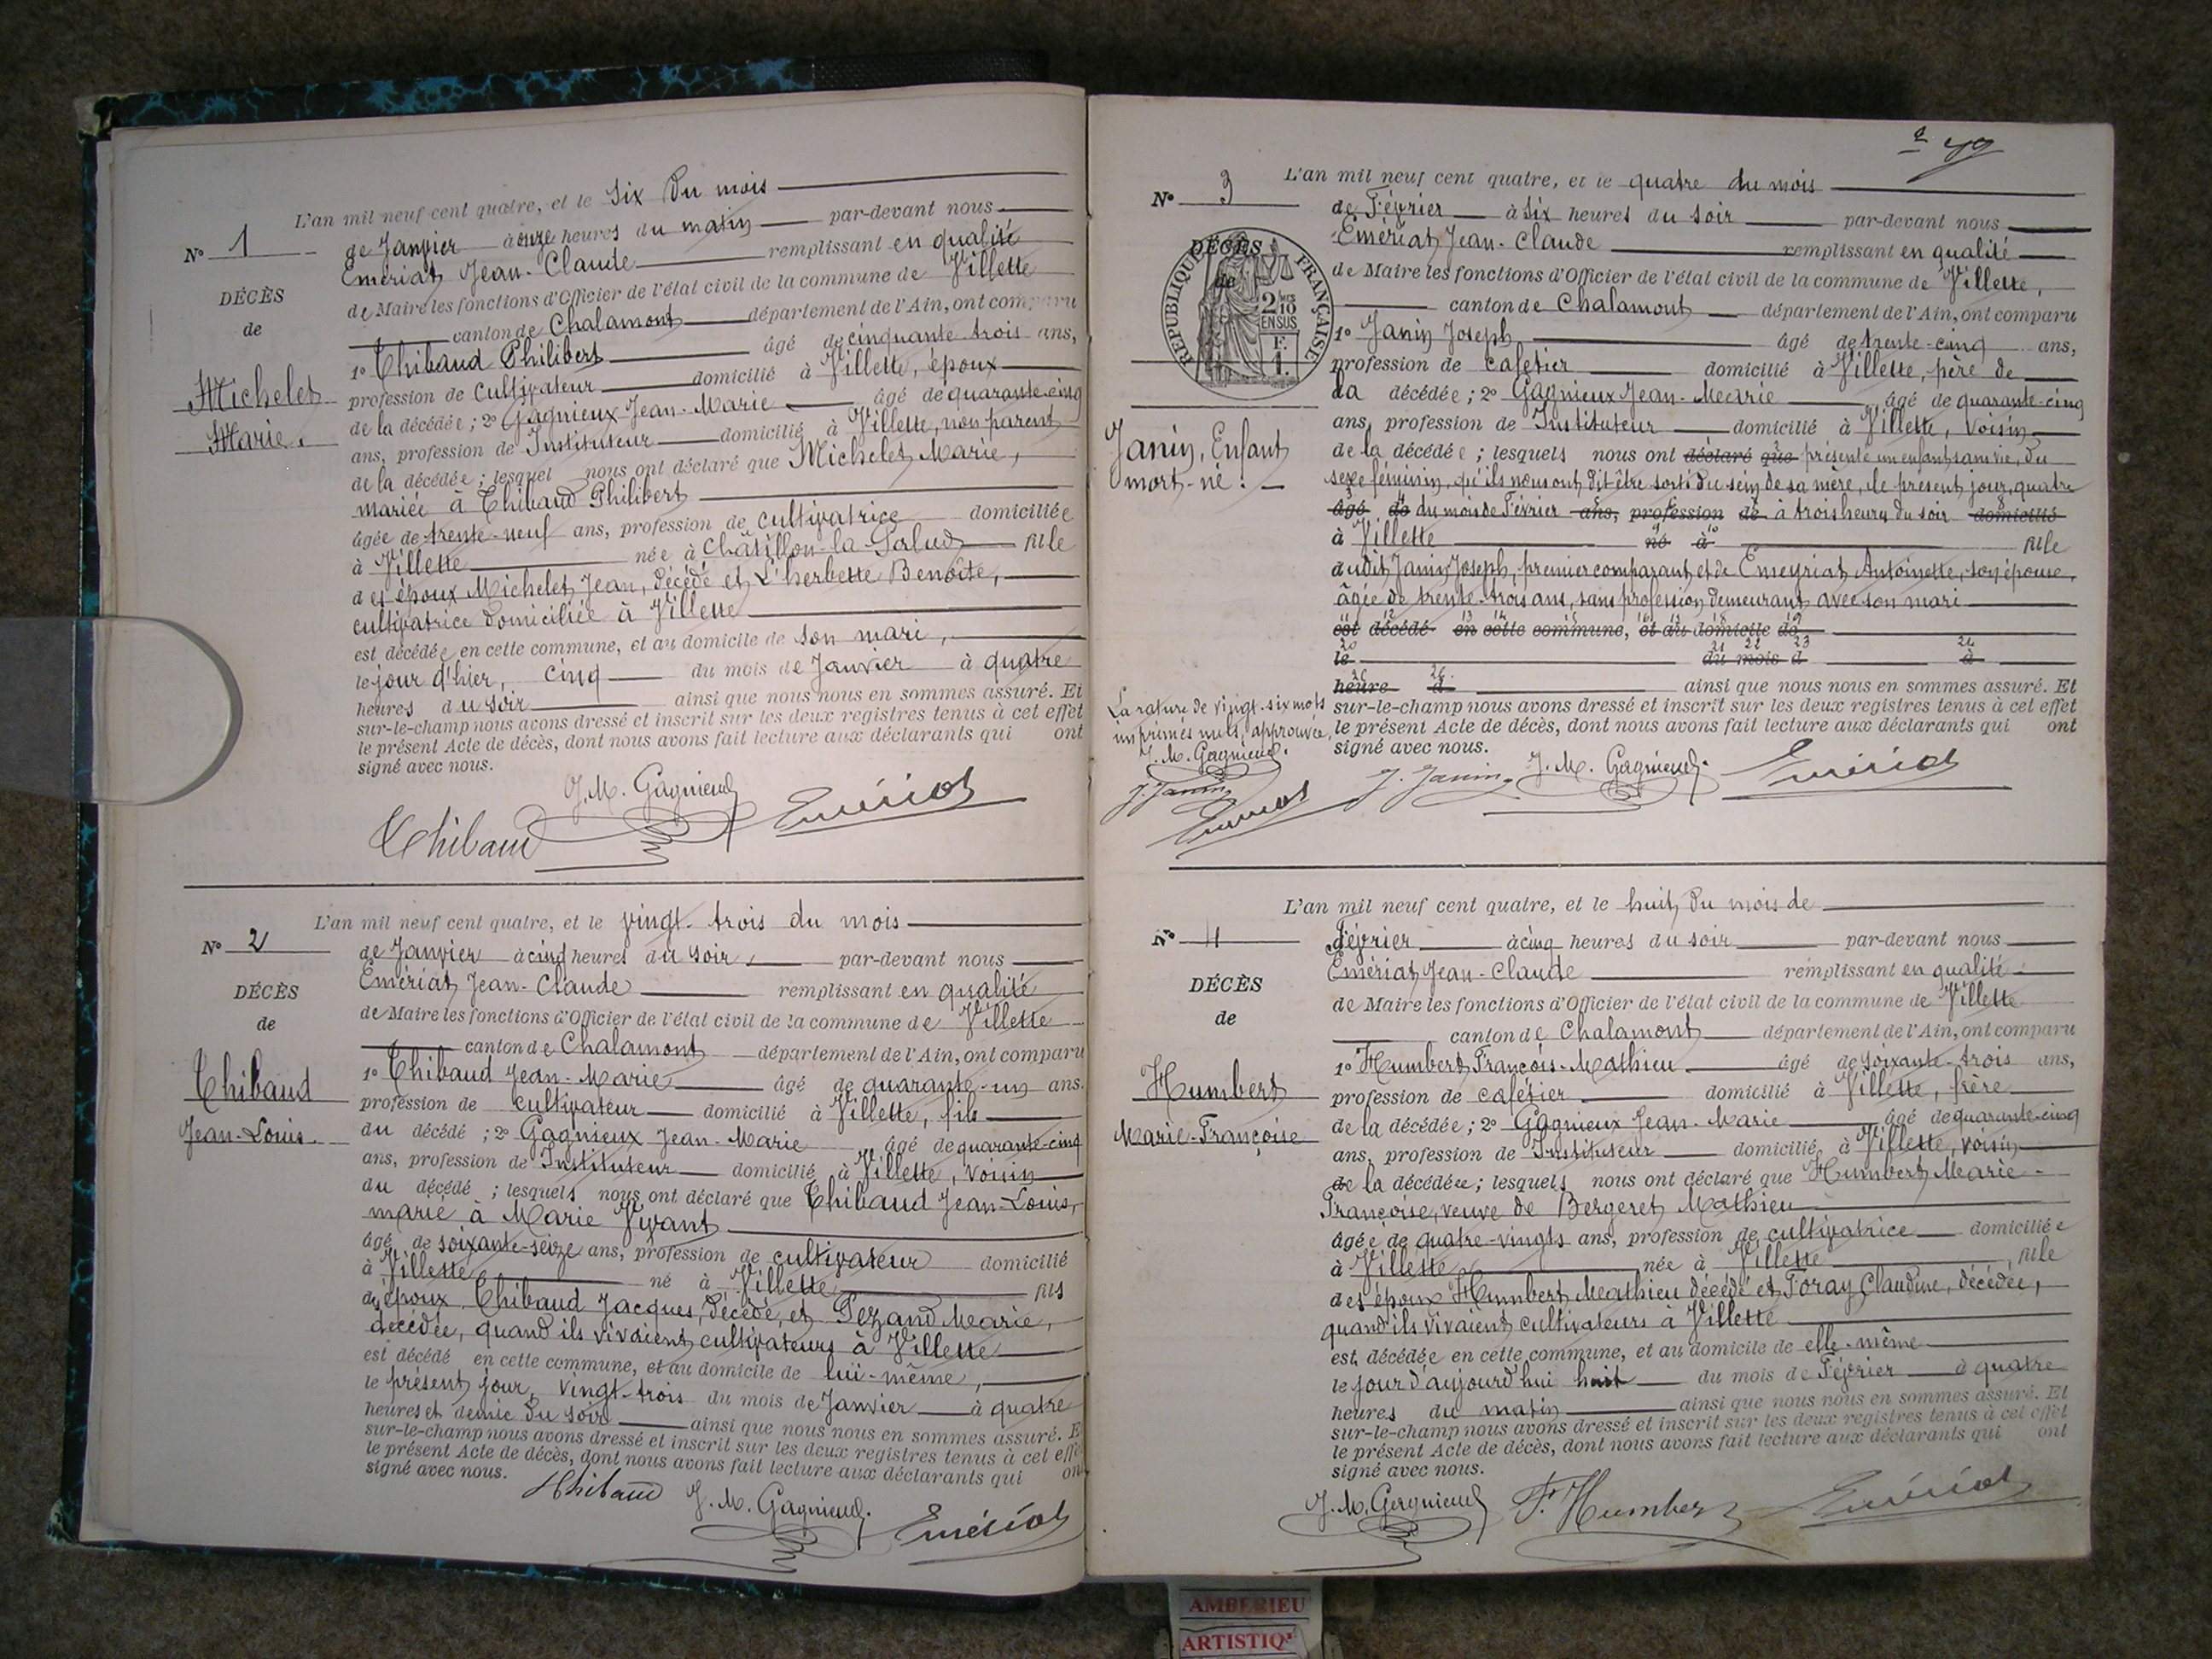 L'an mil neuf cent quatre, et le six du mois
N° 1 de Janvier à onze heures du matin par-devant nous
Emériat Jean-Claude remplissant en qualité
DÉCÈS
de
Michelet
Marie.
de Maire les fonctions d'Officier de l'état civil de la commune de Villette
canton de Chalamont département de l'Ain, ont comparu
1° Thibaud Philibert âgé de cinquante trois ans,
profession de cultivateur domicilié à Villette, époux
de la décédée ; 2° Gagnieux Jean-Marie âgé de quarante-cinq
ans, profession de Instituteur domicilié à Villette, non parent
de la décédée ; lesquel nous ont déclaré que Michelet Marie,
mariée à Thibaud Philibert
âgée de trente-neuf ans, profession de cultivatrice domiciliée
à Villette née à Châtillon-la-Palud fille
des époux Michelet Jean, décédé et L'herbette Benoîte,
cultivatrice domiciliée à Villette
est décédée en cette commune, et au domicile de son mari,
le jour d'hier, cinq du mois de Janvier à quatre
heures du soir ainsi que nous nous en sommes assuré. Et
sur-le-champ nous avons dressé et inscrit sur les deux registres tenus à cet effet
le présent Acte de décès, dont nous avons fait lecture aux déclarants qui ont
signé avec nous.
J. M. Gagnieux
Thibaud Emériat
L'an mil neuf cent quatre, et le vingt-trois du mois
N° 2 de Janvier à cinq heures du soir, par-devant nous
Emériat Jean-Claude remplissant en qualité
DÉCÈS
de
Thibaud
Jean-Louis
de Maire les fonctions d'Officier de l'état civil de la commune de Villette
canton de Chalamont département de l'Ain, ont comparu
1° Thibaud Jean-Marie âgé de quarante-un ans.
profession de cultivateur domicilié à Villette, fils
du décédé ; 2° Gagnieux Jean-Marie âgé de quarante-cinq
ans, profession de Instituteur domicilié à Villette, voisin
du décédé ; lesquels nous ont déclaré que Thibaud Jean-Louis,
marié à Marie Vivant
âgé de soixante-seize ans, profession de cultivateur domicilié
à Villette né à Villette fils
des époux Thibaud Jacques, décédé, et Pezand Marie,
décédée, quand ils vivaient cultivateurs à Villette
est décédé en cette commune, et au domicile de lui-même,
le présent jour, vingt-trois du mois de Janvier à quatre
heures et demie du soir ainsi que nous nous en sommes assuré. E
sur-le-champ nous avons dressé et inscrit sur les deux registres tenus à cet effe
le présent Acte de décès, dont nous avons fait lecture aux déclarants qui on
signé avec nous.
Thibaud J. M. Gagnieux. Emériat
79
L'an mil neuf cent quatre, et le quatre du mois
N° 3 de Février à six heures du soir par-devant nous
Emériat Jean-Claude remplissant en qualité
DÉCÈS
de
RÉPUBLIQUE FRANÇAISE
2/10 EN SUS
F. 1.
Janin, Enfant
mort-né.
de Maire les fonctions d'Officier de l'état civil de la commune de Villette,
canton de Chalamont département de l'Ain, ont comparu
1° Janin Joseph âgé de trente-cinq ans,
profession de cafetier domicilié à Villette, père de
la décédée ; 2° Gagnieux Jean-Marie âgé de quarante-cinq
ans, profession de Instituteur domicilié à Villette, voisin
de la décédée ; lesquels nous ont déclaré que présenté un enfant sans vie, du
sexe féminin, qu'ils nous ont dit être sorti du sein de sa mère, le présent jour, quatre
âgé de du mois de Février ans, profession de à trois heures du soir domicilié
à Villette né à fille
dudit Janin Joseph, premier comparant et de Emeyriat Antoinette, son épouse,
âgée de trente-trois ans, sans profession demeurant avec son mari
est décédé en cette commune, et au domicile de
le du mois d à
heure d ainsi que nous nous en sommes assuré. Et
sur-le-champ nous avons dressé et inscrit sur les deux registres tenus à cet effet
le présent Acte de décès, dont nous avons fait lecture aux déclarants qui ont
signé avec nous.
La rature de vingt-six mots
imprimés nuls, approuvée,
J. M. Gagnieux.
J. Janin
Emériat
J. Janin J. M. Gagnieux. Emériat
L'an mil neuf cent quatre, et le huit du mois de
N° 4 Février à cinq heures du soir par-devant nous
Emériat Jean-Claude remplissant en qualité
DÉCÈS
de
Humbert
Marie-Françoise
de Maire les fonctions d'Officier de l'état civil de la commune de Villette
canton de Chalamont département de l'Ain, ont comparu
1° Humbert François-Mathieu âgé de soixante-trois ans,
profession de cafetier domicilié à Villette, frère
de la décédée ; 2° Gagnieux Jean-Marie âgé de quarante-cinq
ans, profession de Instituteur domicilié à Villette, voisin
de la décédée ; lesquels nous ont déclaré que Humbert Marie-
Françoise, veuve de Bergeret Mathieu
âgée de quatre-vingts ans, profession de cultivatrice domiciliée
à Villette née à Villette fille
des époux Humbert Mathieu décédé et Foray Claudine, décédée,
quand ils vivaient cultivateurs à Villette
est décédée en cette commune, et au domicile de elle-même
le jour d'aujourd'hui huit du mois de Février à quatre
heures du matin ainsi que nous nous en sommes assuré. Et
sur-le-champ nous avons dressé et inscrit sur les deux registres tenus à cet effet
le présent Acte de décès, dont nous avons fait lecture aux déclarants qui ont
signé avec nous.
J. M. Gagnieux F. Humbert Emériat
AMBERIEU
ARTISTIQ